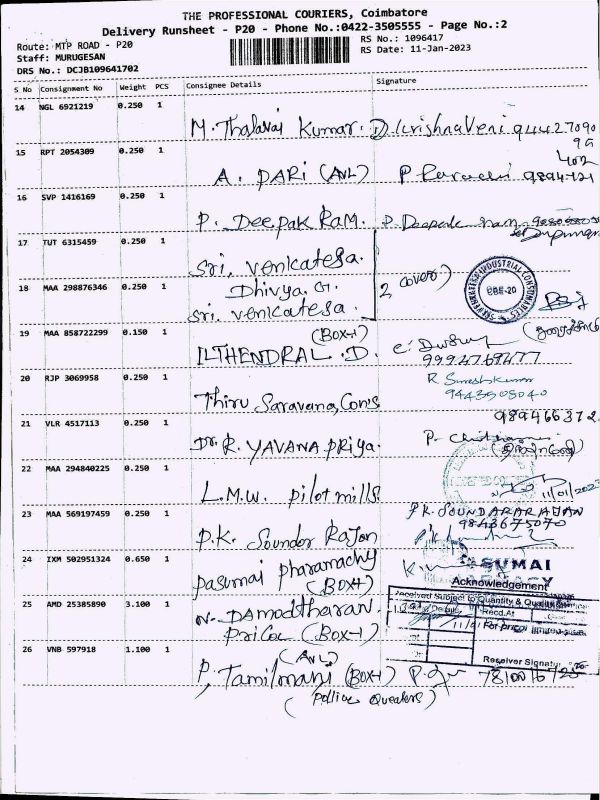 THE PROFESSIONAL COURIERS, Coimbatore
Delivery Runsheet - P20 - Phone No.:0422-3505555 - Page No.:2
Route: MTP ROAD - P20
RS No.: 1096417
Staff: MURUGESAN
RS Date: 11-Jan-2023
DRS No.: DCJB109641702
S No Consignment No Weight PCS Consignee Details Signature
14 NGL 6921219 0.250 1
M. Thalavai Kumar. D. Krishnaveni 94427090
99
15 RPT 2054309 0.250 1
402
A. PARI (AVL) P 9894721
16 SVP 1416169 0.250 1
P. Deepak Ram. P. Deepak ram
17 TUT 6315459 0.250 1
Sri. Venkatesa.
18 MAA 298876346 0.250 1
Dhivya. G. 2 cover)
Sri. Venkatesa.
19 MAA 858722299 0.150 1
(Box-1)
ILTHENDRAL. D. 9994769477
20 RJP 3069958 0.250 1
R Sureshkumar
9443505040
Thiru Saravana Cons
21 VLR 4517113 0.250 1
989466372
Dr. R. YAVANA Priya.
22 MAA 294840225 0.250 1
L.M.W. Pilot mills 11/01/2023
23 MAA 569197459 0.250 1
P.K. SOUNDARARAJAN
9843675070
P.K. Sounder Rajan
24 IXM 502951324 0.650 1
Pasumai pharamachy
(Box-1)
SUMAI
Acknowledgement
25 AMD 25385890 3.100 1
Received Subject to Quantity & Quality
N. Damodtharan
Recd.At
Pricol (Box-1)
26 VNB 597918 1.100 1
(AVL)
Receiver Signatu
P. Tamilmani (Box-1)
(Police Queaters)